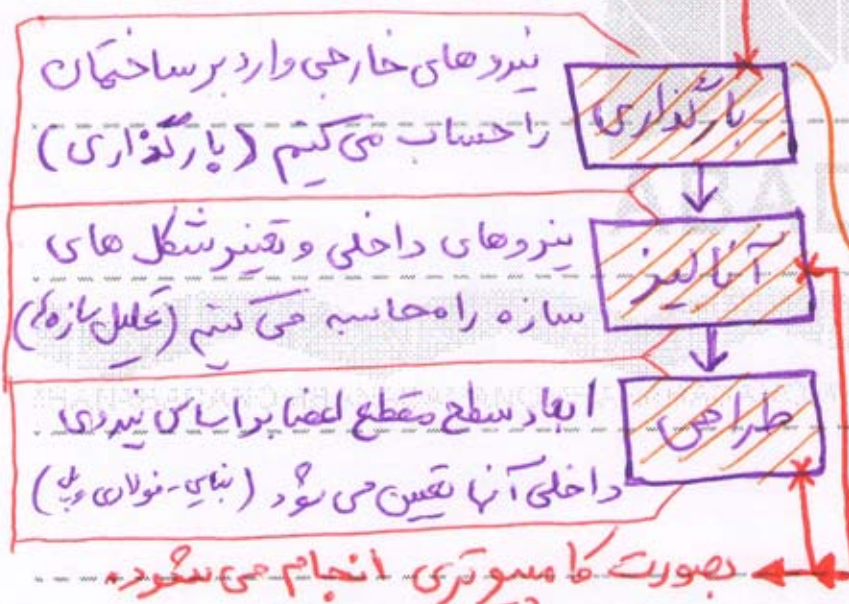 نیروهای خارجی وارد بر ساختمان
را حساب می کنیم (بارگذاری)
بارگذاری
نیروهای داخلی و تغییر شکل های
سازه را محاسبه می کنیم (تحلیل سازه)
آنالیز
ابعاد سطح مقطع اعضا بر اساس نیروی
داخلی آنها تعیین می شود (بنایی-فولادی
طراحی
بصورت کامپیوتری انجام می شود.